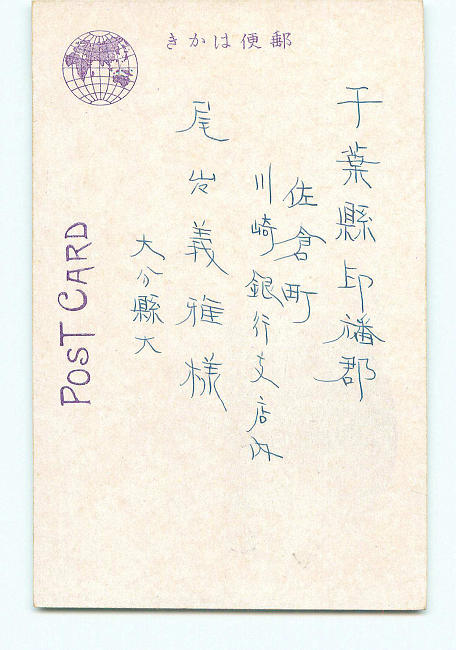 郵便はかき
千葉縣印旛郡
佐倉町
川崎銀行支店内
尾岩義雅様
大分縣大
POST CARD